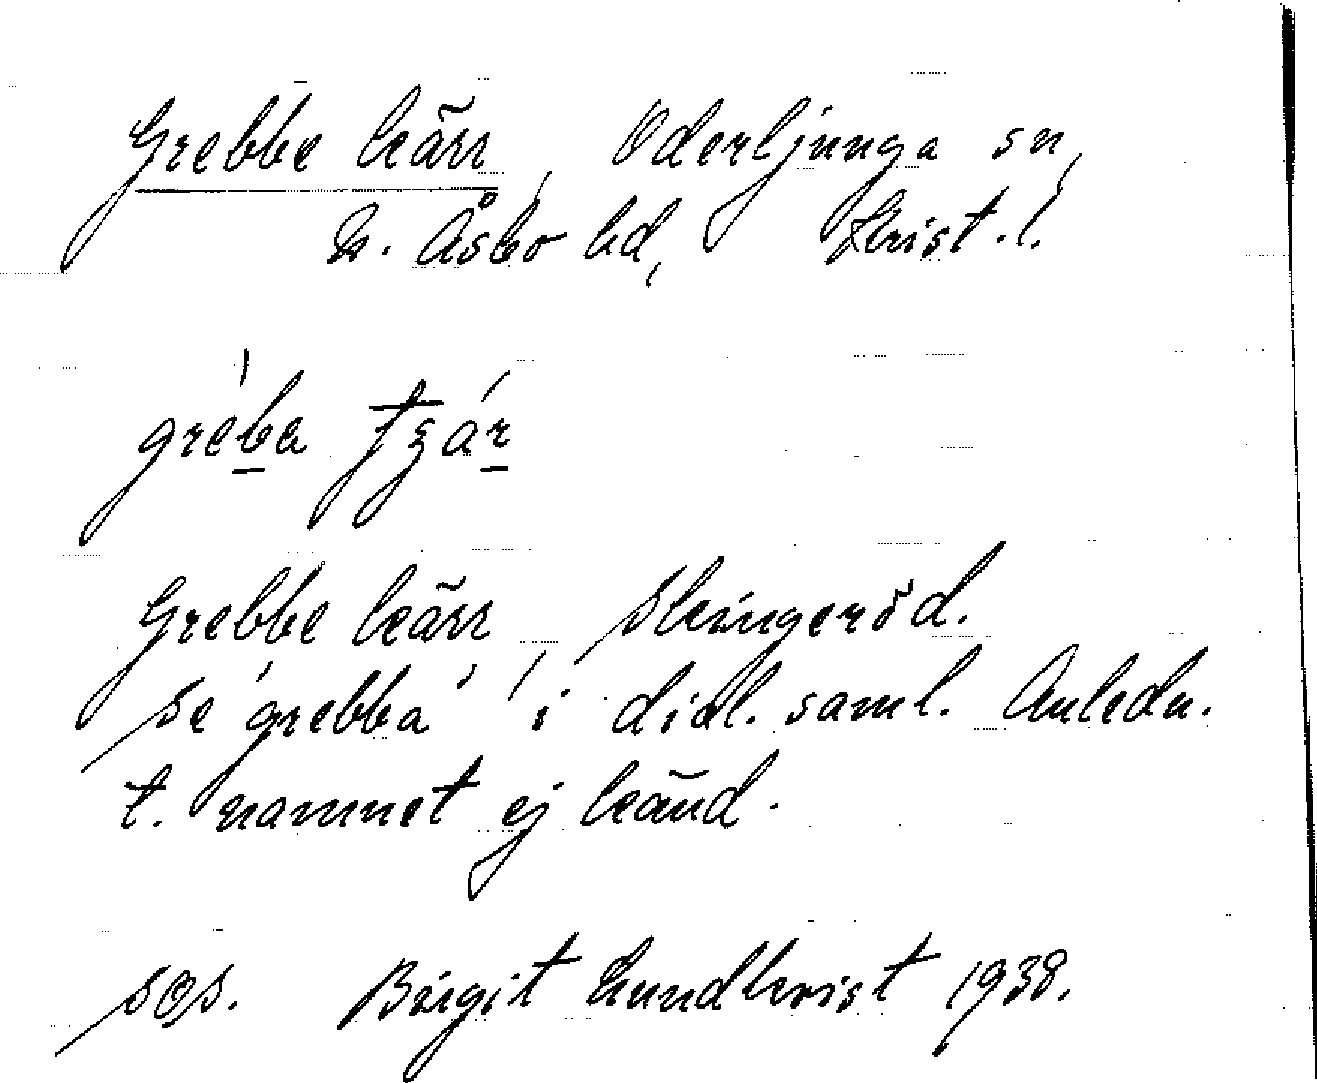 Grebbe kärr, Oderljunga sn,
N. Åsbo hd, Krist. l.
Grebbe kärr, Skingeröd.
Se 'grebba' i dial. saml. Anledn.
t. namnet ej känd.
sgs. Birgit Lundkvist 1938.